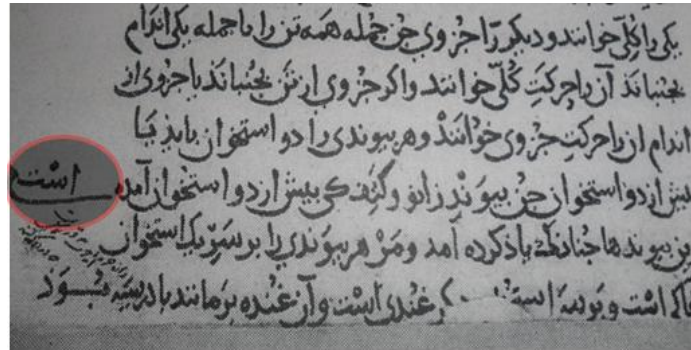 یکی را کلّی خوانند و دیگر را جزوی جن جمله همه تن را یا جمله یکی اندام
بجنباند آن را حرکتِ کُلّی خوانند و اکر جزوی از تن بجنباند یا جزوی از
اندام ان را حرکتِ جزوی خوانَنْد و هر بیوندی را دو استخوان باید یا
بیش از دو استخوان جن بیوندِ زانو و کتف کی بیش از دو استخوان آمده اسْت
این بیوندها جنانکه یاذ کرده آمد و مَرْ هر بیوندی را بر سَرِ یک استخوان
مغاکی اسْت و بر سر استخوان دیگر غُندی اسْت و آن غُنده بَرمانند بادریسَه بُوَذ